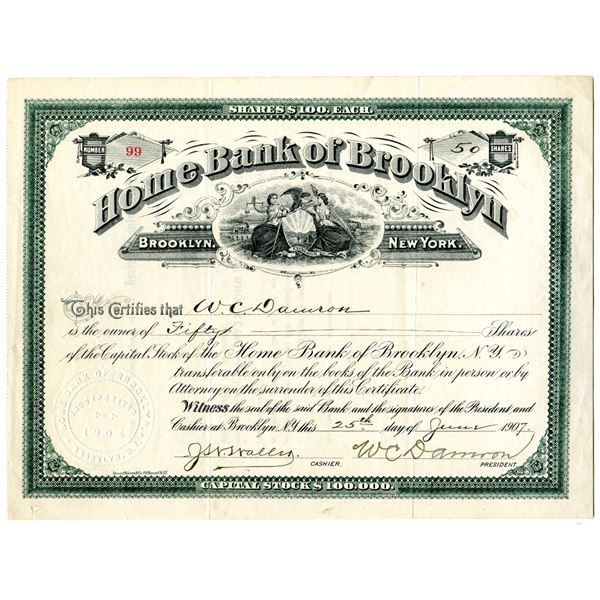 SHARES $100. EACH.
NUMBER 99
50 SHARES
Home Bank of Brooklyn
BROOKLYN, NEW YORK.
This Certifies that W.C. Damron
is the owner of Fifty Shares
of the Capital Stock of the Home Bank of Brooklyn, N.Y.
transferable only on the books of the Bank in person or by
Attorney on the surrender of this Certificate.
Witness the seal of the said Bank and the signatures of the President and
Cashier at Brooklyn, N.Y. this 25th day of June 1907.
CASHIER.
W.C. Damron
PRESIDENT
HOME BANK OF BROOKLYN
INCORPORATED
1905
CAPITAL STOCK $100,000.